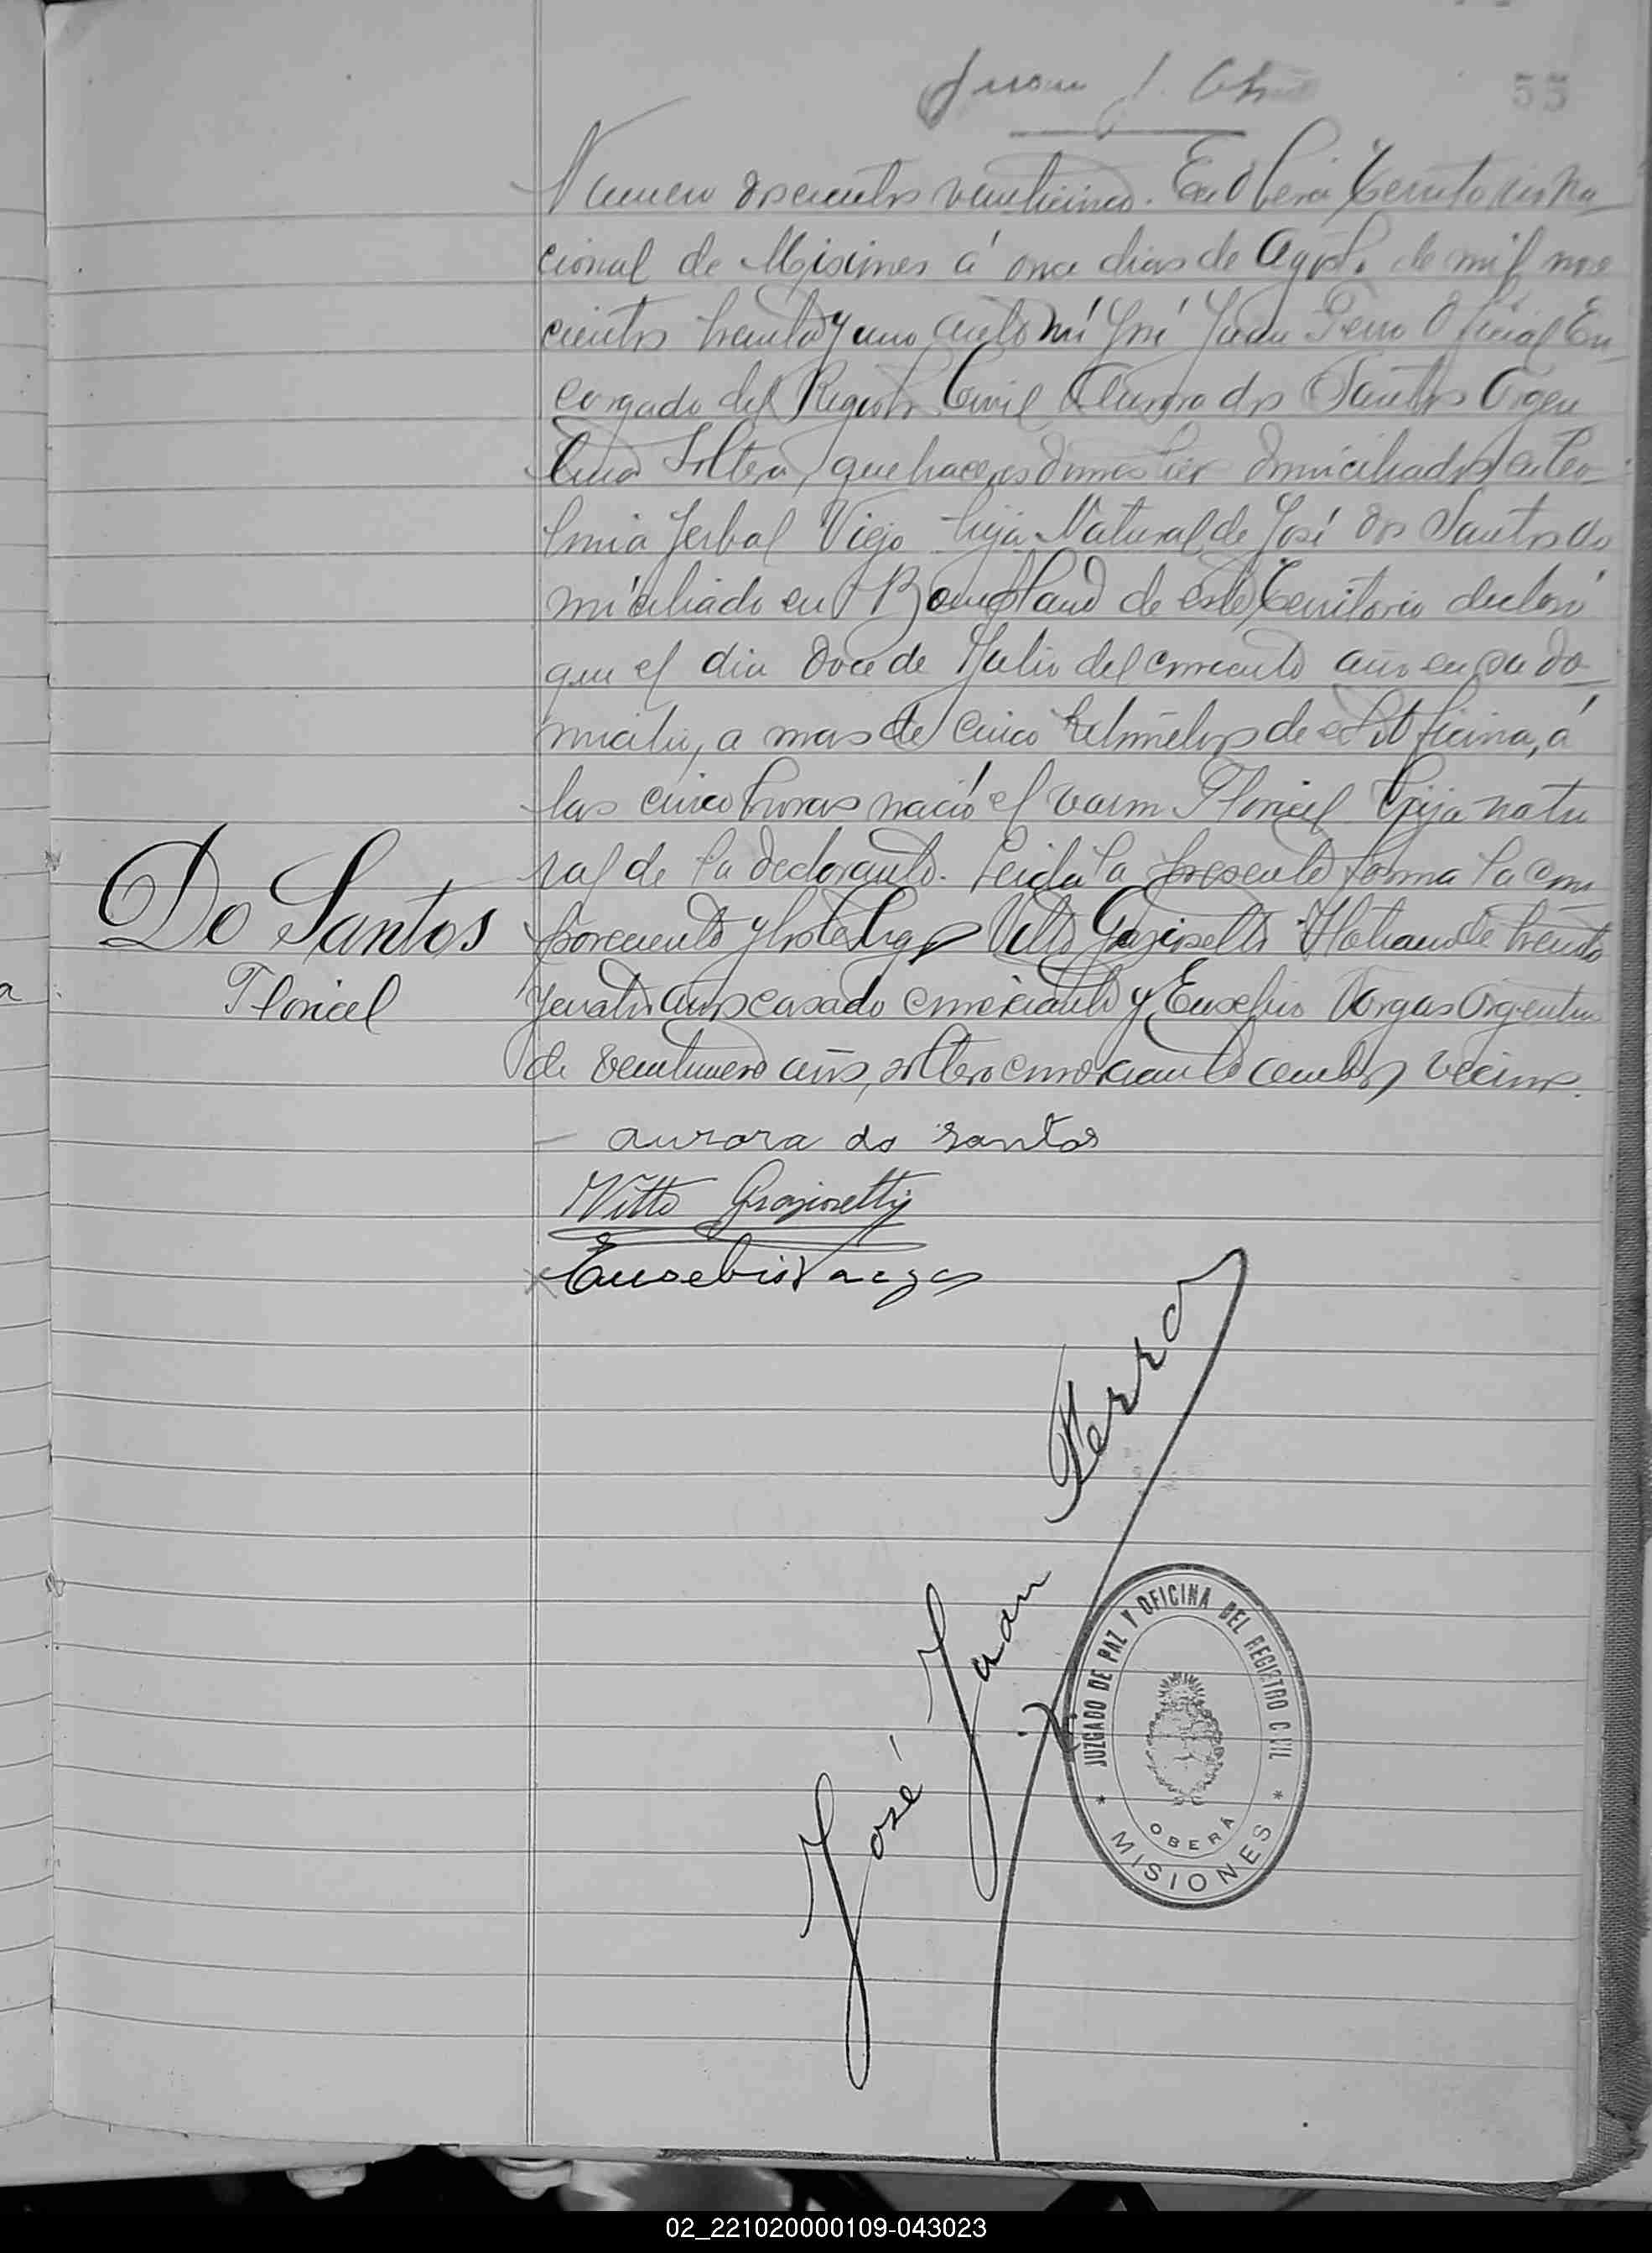 Juan J.
55
Numero doscientos veinticinco. En Oberá Territorio Na
cional de Misiones á once dias de Agosto de mil nove
cientos treinta y uno ante mí José Juan Perro Oficial En
cargado del Registro Civil Aurora dos Santos Argen
tina Soltera, quehaceres domesticos domiciliados en Co
lonia Yerbal Viejo hija Natural de José dos Santos do
miciliado en Bompland de este Territorio declaró
que el dia doce de Julio del corriente año en su do
micilio, a mas de cinco kilometros de esta Oficina, á
las cinco horas nació el varon Floricel hijo natu
ral de la declarante. Leida la presente forma la com
Do Santos
pareciente y los testigos Vitto Italiano de treinta
Floricel
y cuatro años casado comerciante y Eusebio Vargas Argentino
de veintinueve años, soltero comerciante ambos vecinos.
aurora do santos
Vitto Grazioselty
Eusebio Vargas
José Juan Perro
JUZGADO DE PAZ Y OFICINA DEL REGISTRO CIVIL
OBERÁ
* MISIONES *
02_221020000109-043023